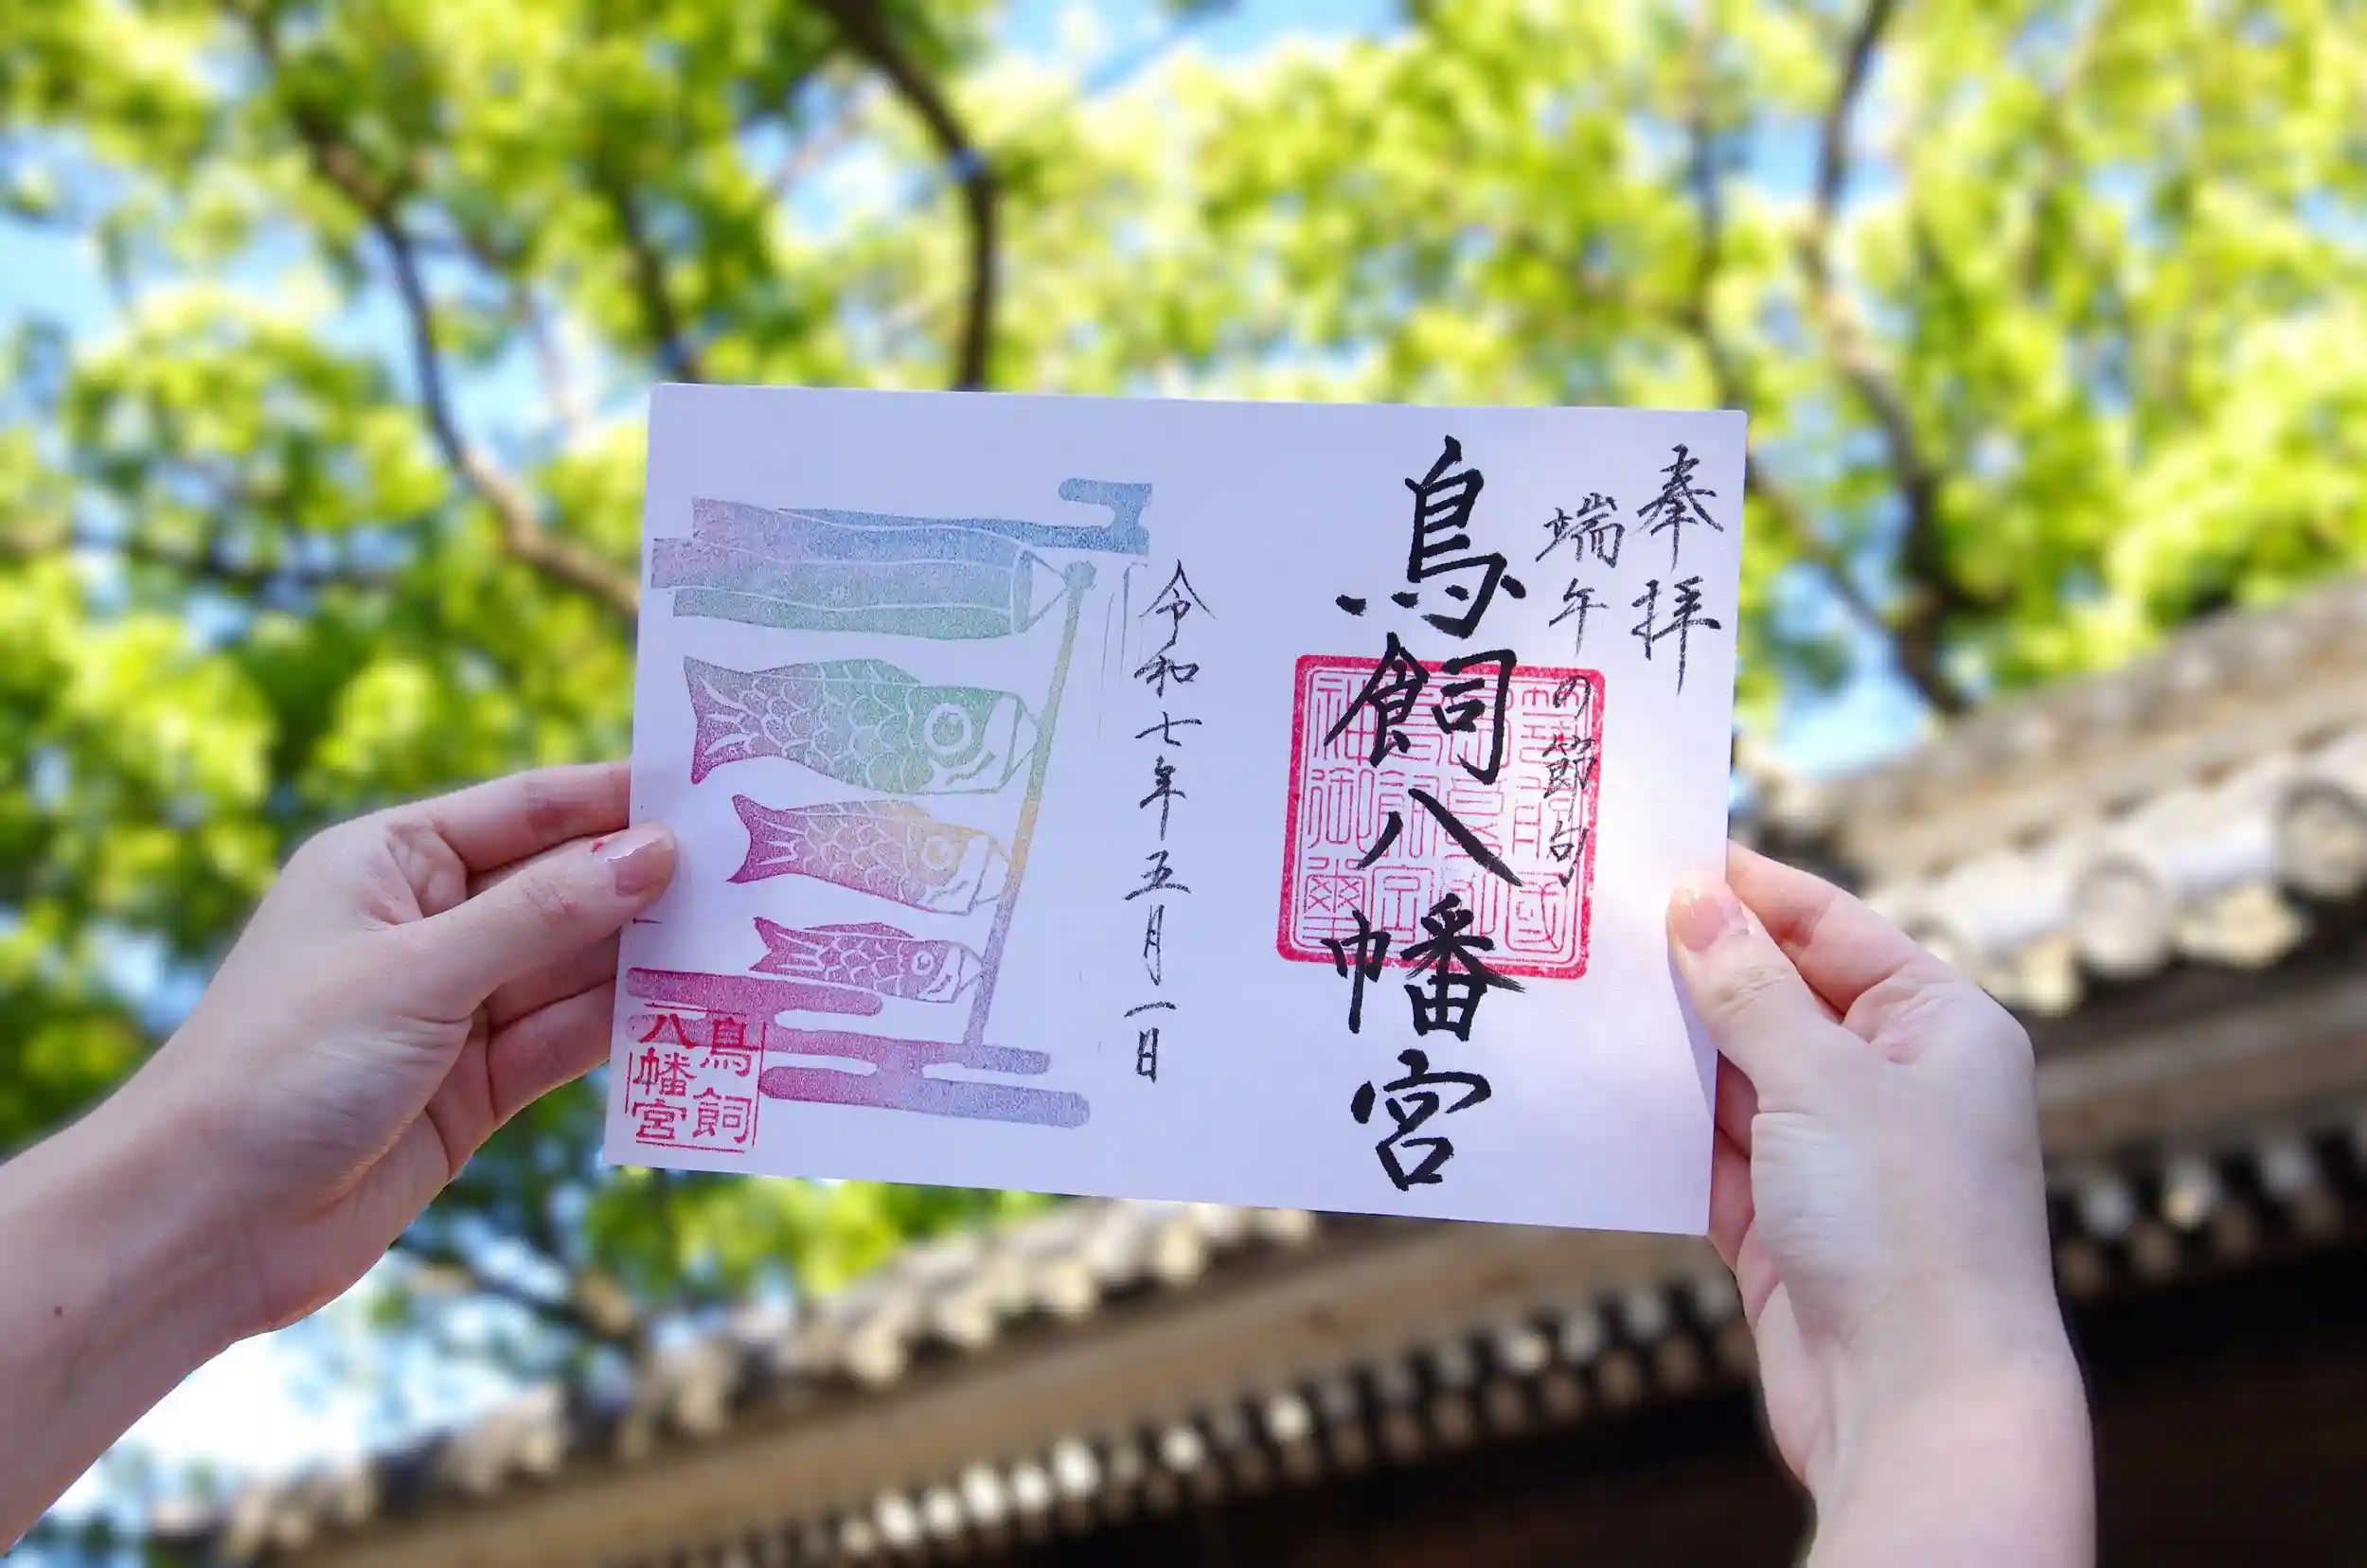 奉拝
端午の節句
鳥飼八幡宮
令和七年五月一日
鳥飼
八幡宮